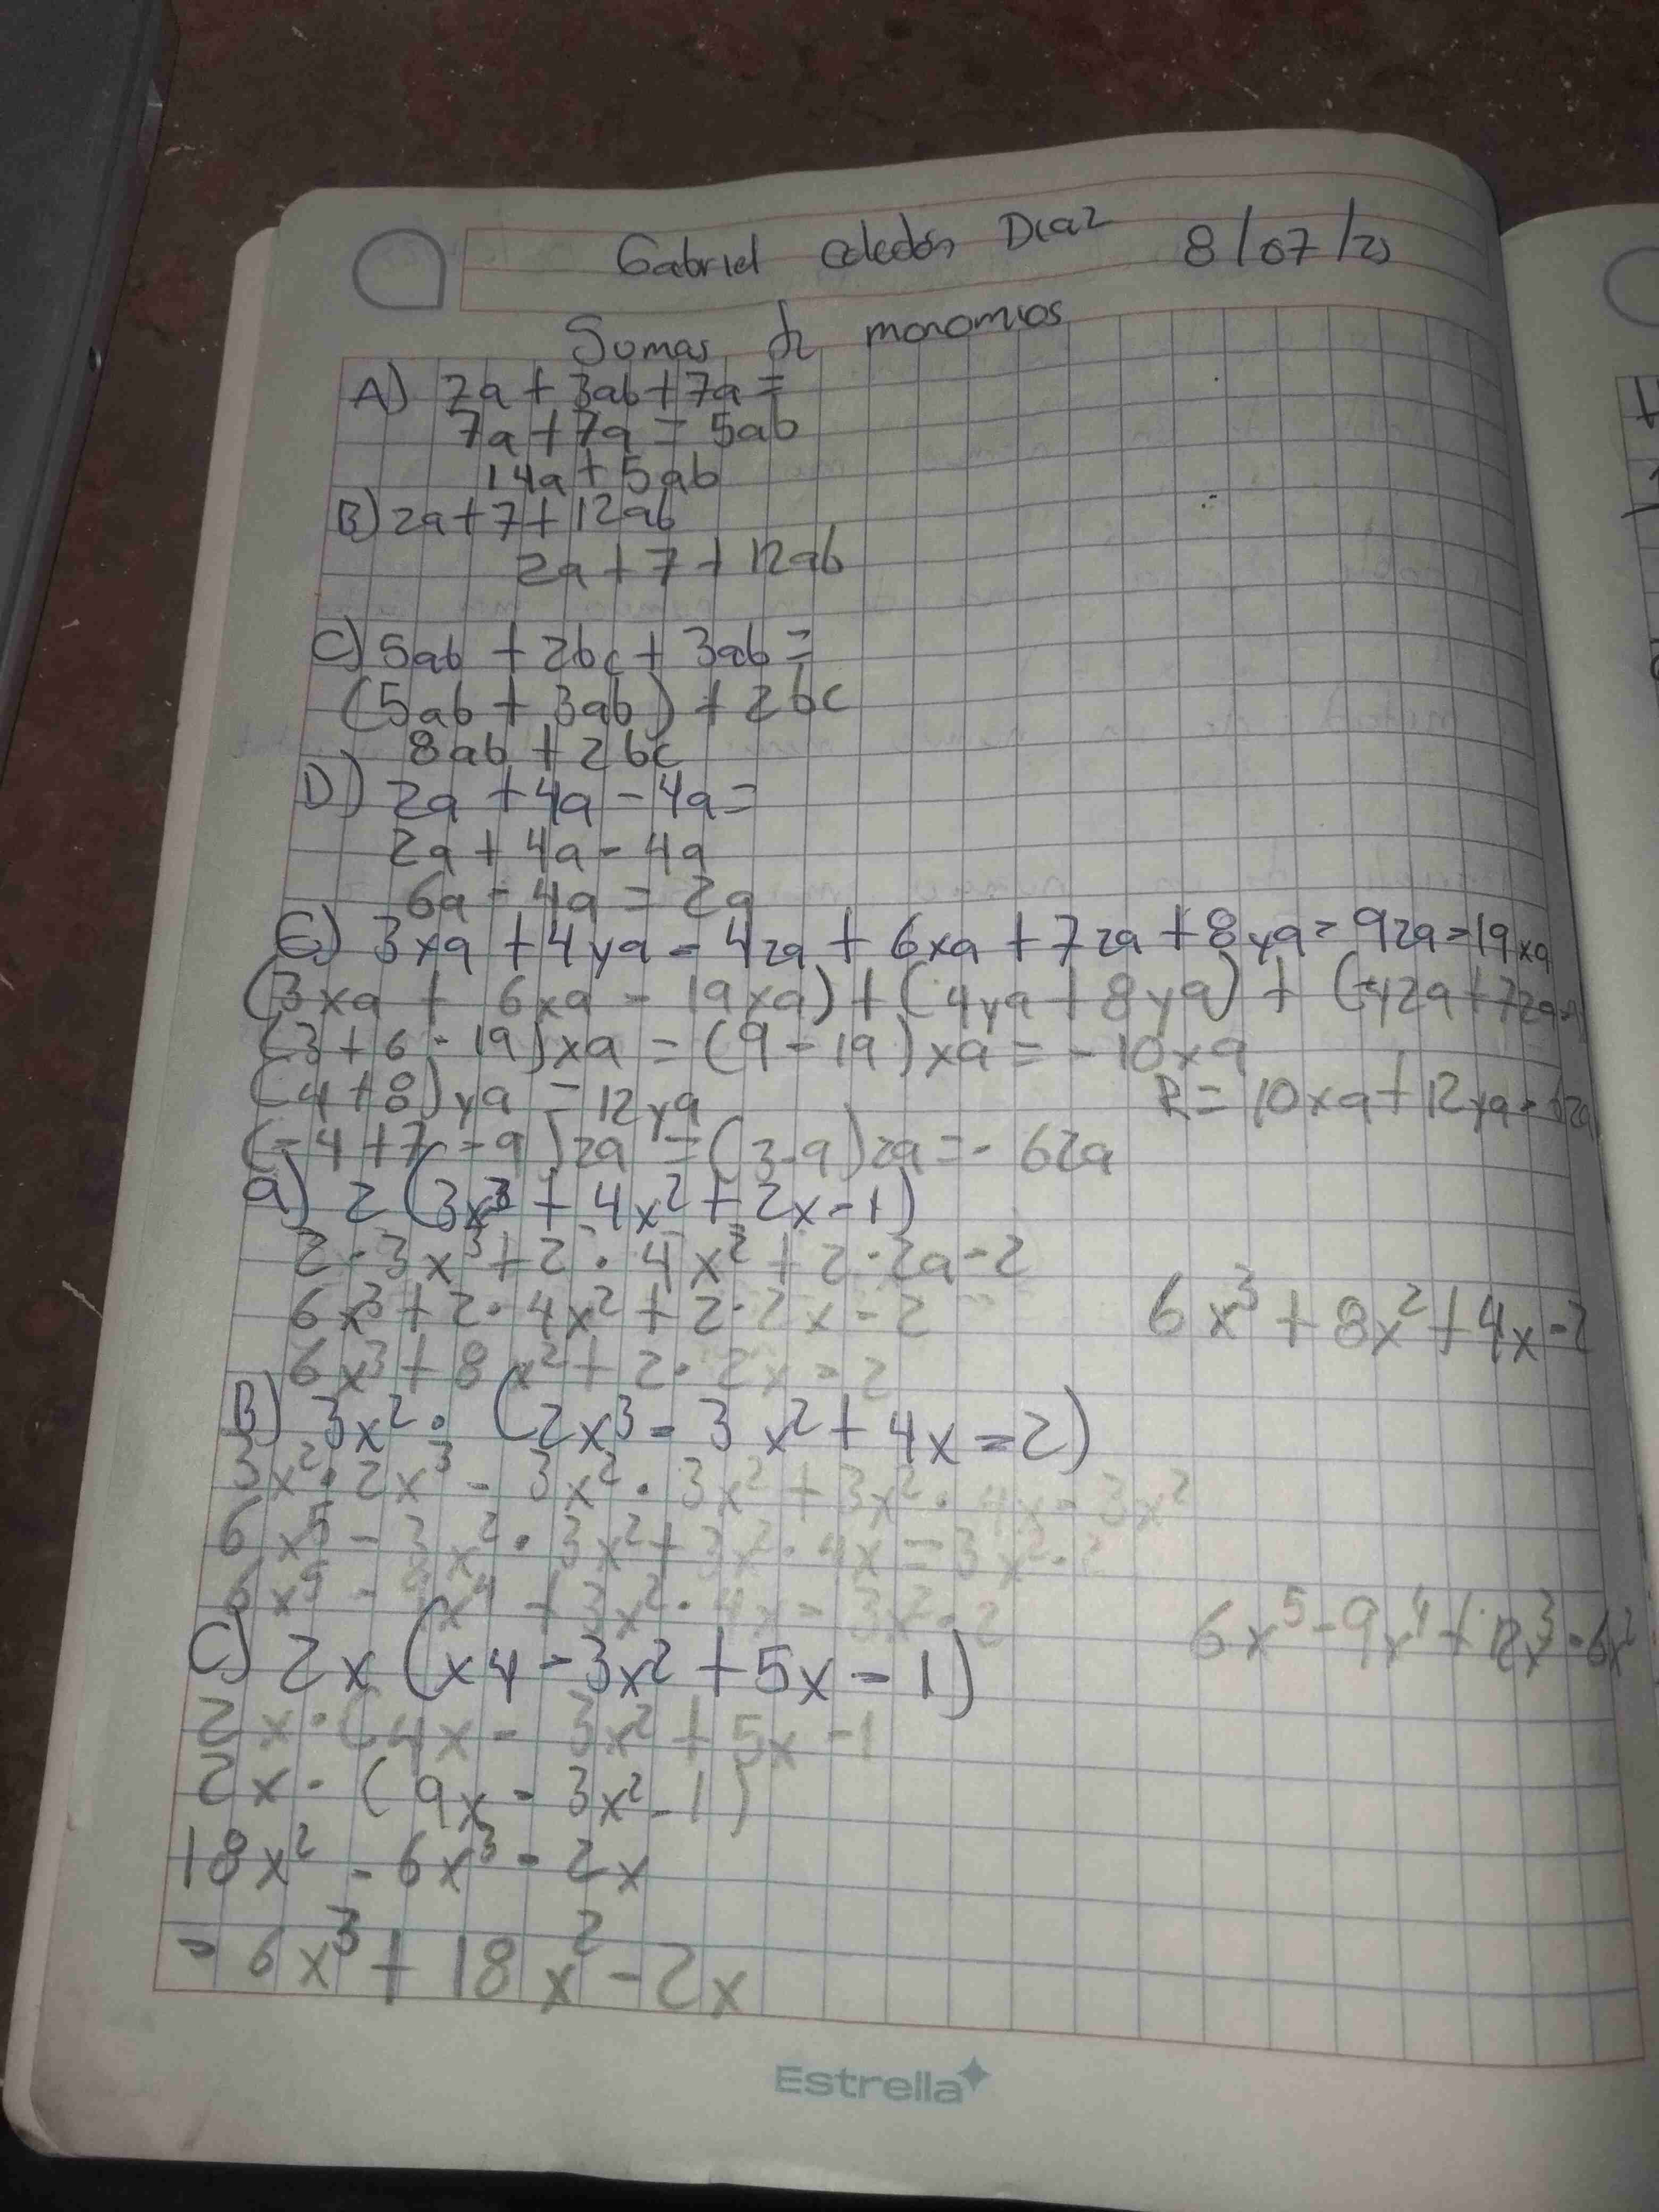 Gabriel Celedón Diaz 8/07/25
Sumas de monomios
A) 7a + 3ab + 7a =
7a + 7a = 5ab
14a + 5ab
B) 2a + 7 + 12ab
2a + 7 + 12ab
C) 5ab + 2bc + 3ab =
(5ab + 3ab) + 2bc
8ab + 2bc
D) 2a + 4a - 4a =
2a + 4a - 4a
6a - 4a = 2a
E) 3xa + 4ya - 4za + 6xa + 7za + 8ya - 9za - 19xa
(3xa + 6xa - 19xa) + (4ya + 8ya) + (-4za + 7za
(3 + 6 - 19)xa = (9 - 19)xa = -10xa
(4 + 8)ya = 12ya
R = 10xa + 12ya - 6za
(-4 + 7 - 9)za = (3 - 9)za = - 6za
a) 2 (3x³ + 4x² + 2x - 1)
2 · 3x³ + 2 · 4x² + 2 · 2a - 2
6x³ + 2 · 4x² + 2 · 2x - 2
6x³ + 8x² + 4x - 2
6x³ + 8x² + 2 · 2x - 2
B) 3x² · (2x³ - 3x² + 4x - 2)
3x² · 2x³ - 3x² · 3x² + 3x² · 4x - 3x²
6x⁵ - 3x² · 3x² + 3x² · 4x - 3x² · 2
6x⁵ - 9x⁴ + 3x² · 4x - 3x² · 2
6x⁵ - 9x⁴ + 12x³ - 6x²
C) 2x (x4 - 3x² + 5x - 1)
2x · (4x - 3x² + 5x - 1
2x · (9x - 3x² - 1)
18x² - 6x³ - 2x
- 6x³ + 18x² - 2x
Estrella